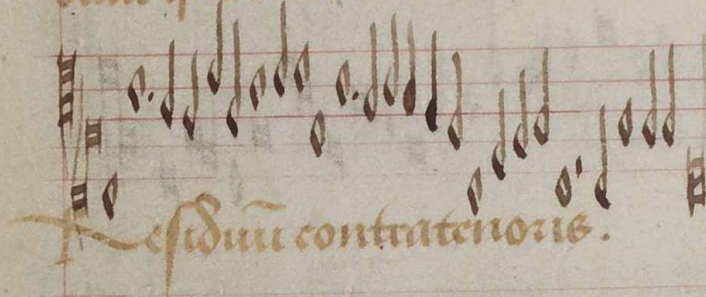 Residuū contratenoris.